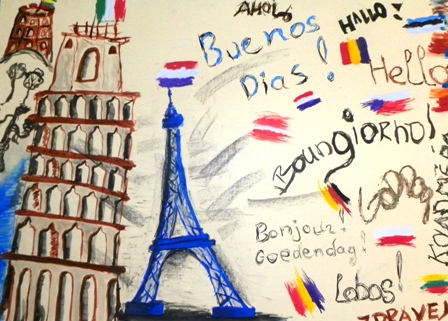 AHOJ
HALLO!
Buenos
Dias!
Hello
Boungiorno!
Bonjour!
Goedendag!
Labas!
ZDRAVE